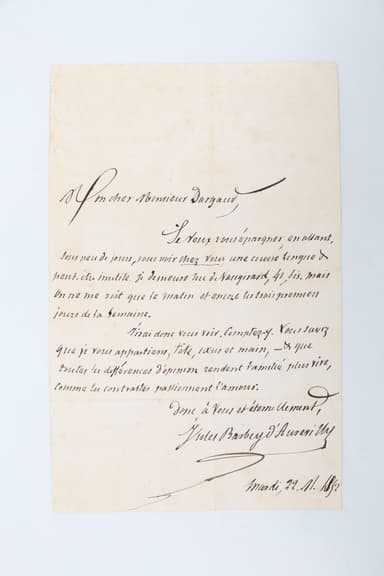 Mon cher Monsieur Dargaud,
Je veux vous épargner en allant,
sous peu de jours, vous voir chez vous une course longue &
peut-être inutile. Je demeure rue de Vaugirard, 41, bis, mais
on ne me voit que le matin et encore les trois premiers
jours de la semaine.
J'irai donc vous voir. Comptez-y. Vous savez
que je vous appartiens, tête, cœur et main, — & que
toutes les différences d'opinion rendent l'amitié plus vive,
comme les contrastes passionnent l'amour.
Donc à vous et éternellement,
Jules Barbey d'Aurevilly
Mardi, 22. 1852